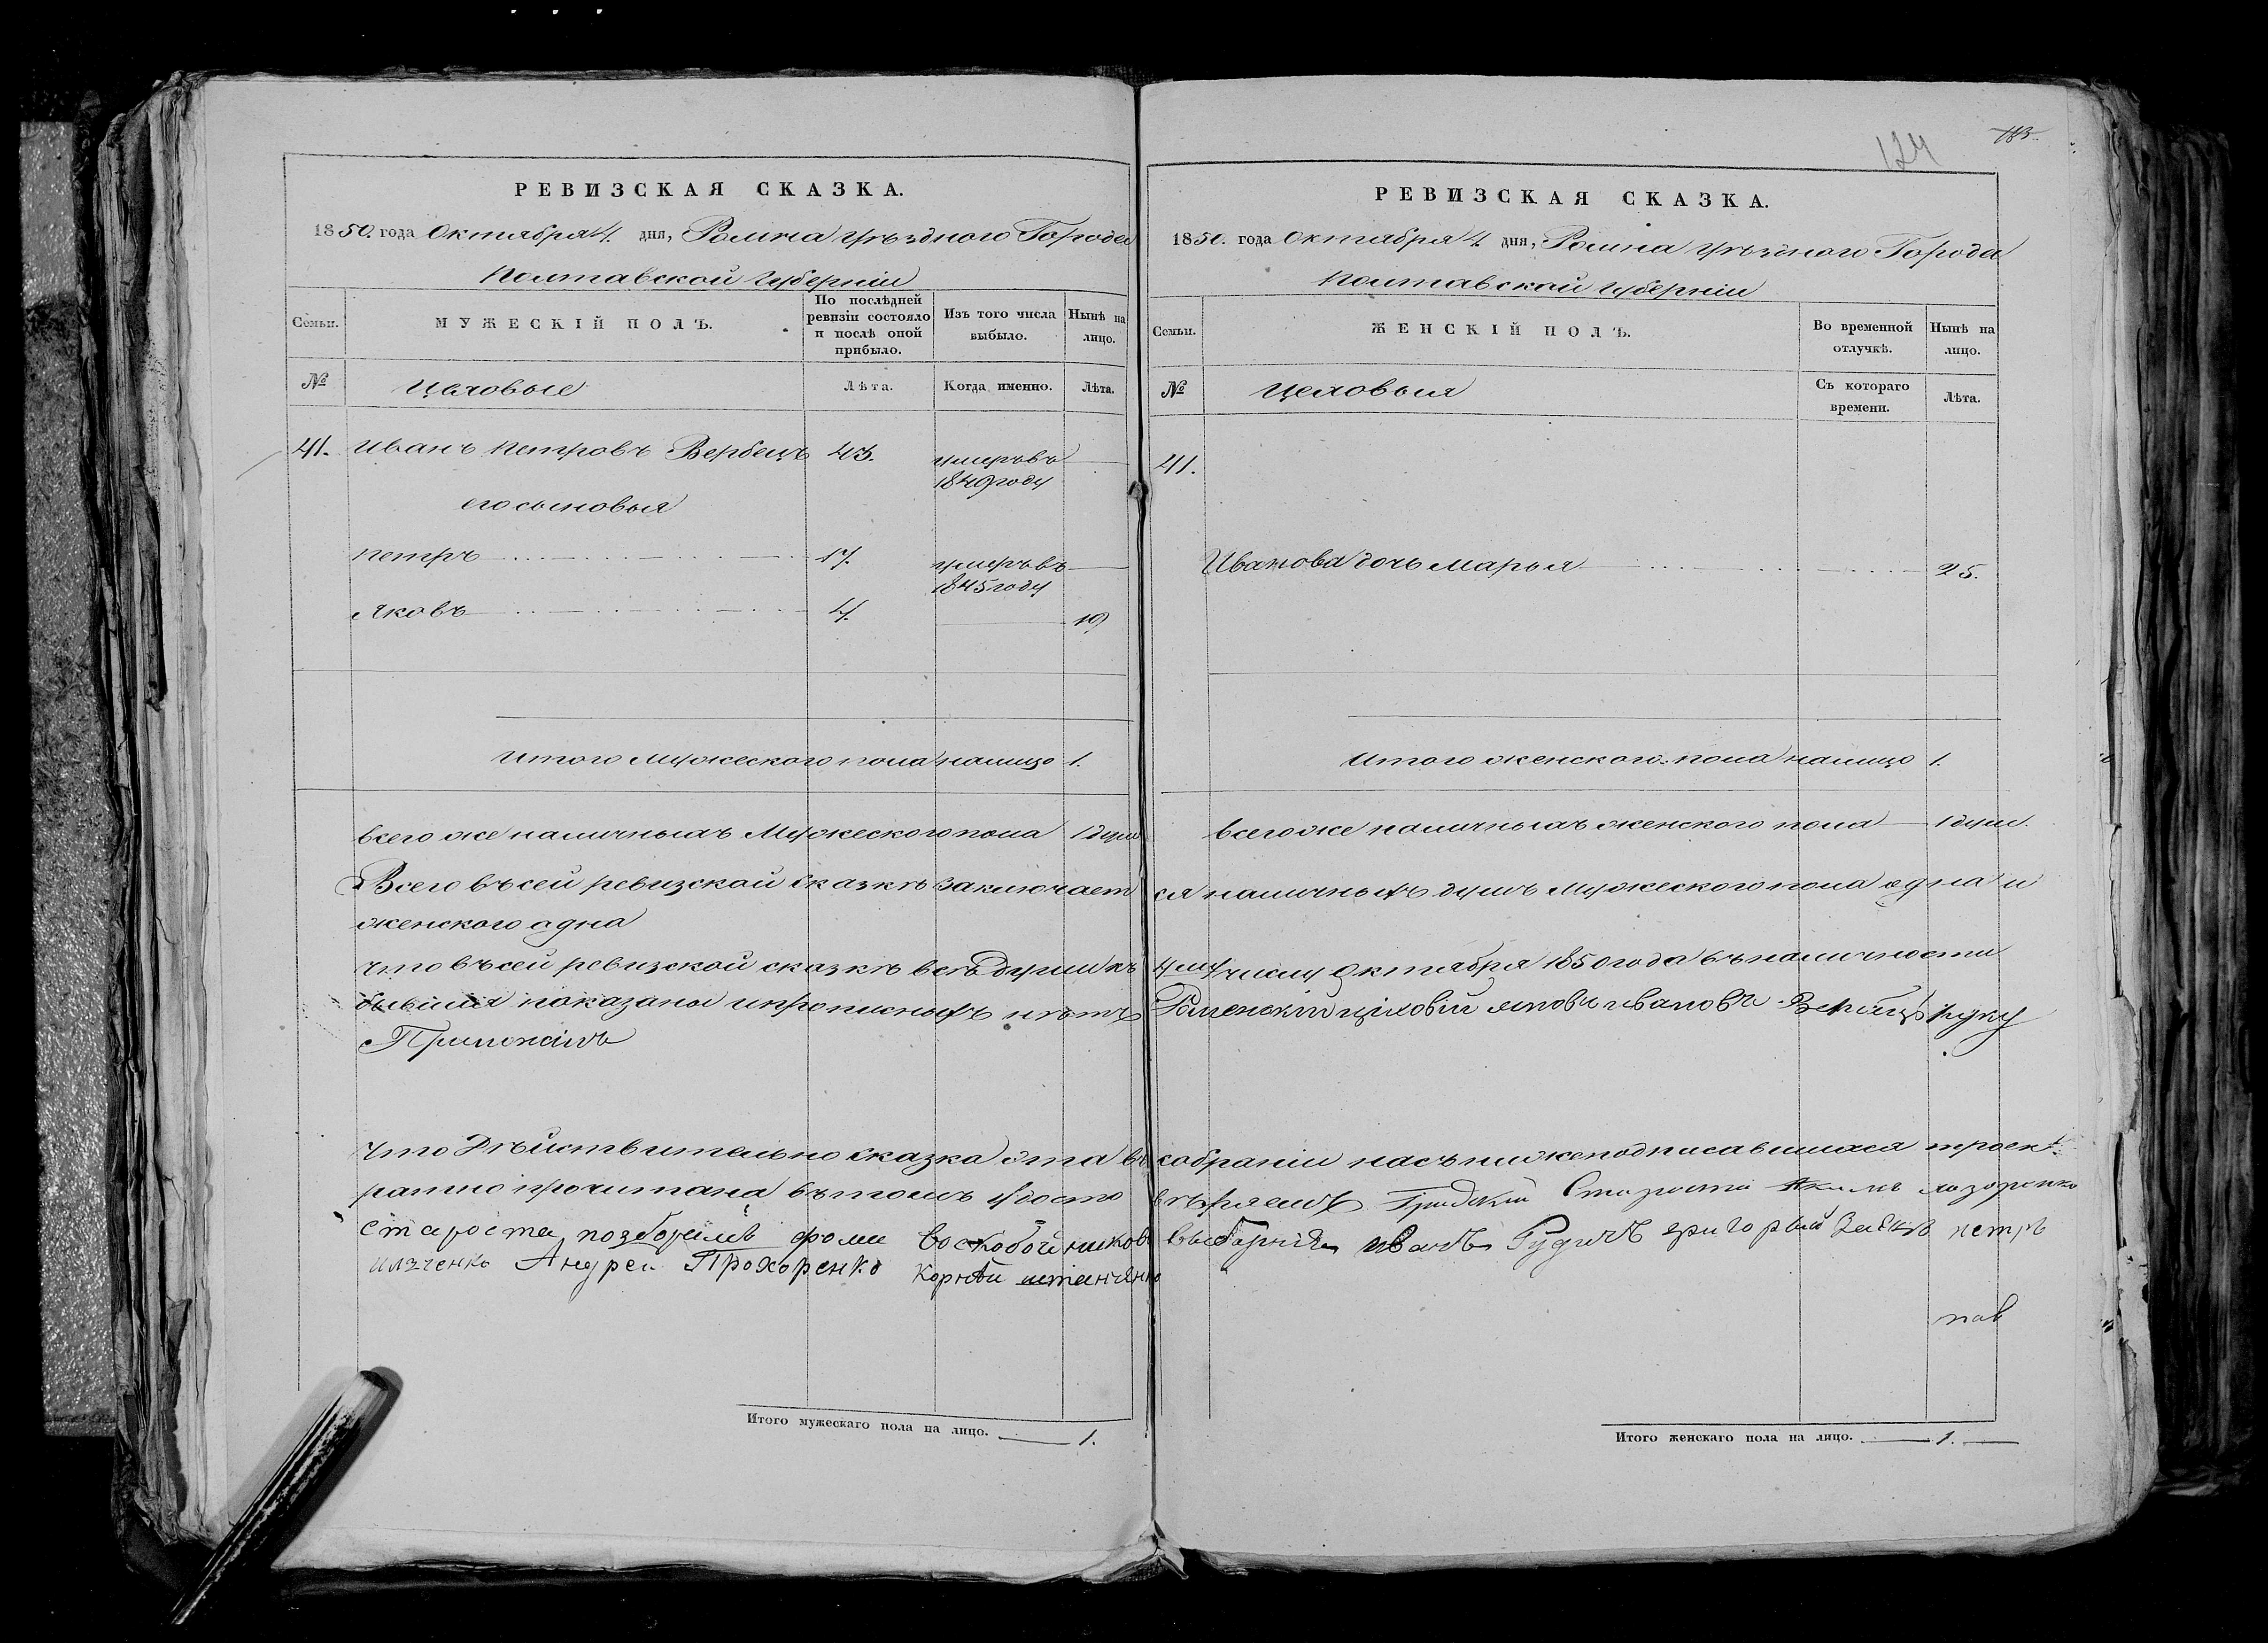 124
183
РЕВИЗСКАЯ СКАЗКА.
1850. года Октября 4. дня, Ромна Уѣзднаго Города
Полтавской Губерніи
Семьи.
МУЖЕСКІЙ ПОЛЪ.
По послѣдней ревизіи состояло и послѣ оной прибыло.
Изъ того числа выбыло.
Нынѣ на лицо.
№
Цеховые
Лѣта.
Когда именно.
Лѣта.
41. Иванъ Петровъ Вербецъ 43. умеръ въ
1849 году
его сыновья
Петръ 17. умеръ въ
1845 году
Яковъ 4. 19
Итого мужеского пола налицо 1.
всего же наличныхъ Мужеского пола 1 душ
РЕВИЗСКАЯ СКАЗКА.
1850. года Октября 4. дня, Ромна Уѣзднаго Города
Полтавской Губерніи
Семьи.
ЖЕНСКІЙ ПОЛЪ.
Во временной отлучкѣ.
Нынѣ на лицо.
№
Цеховыя
Съ котораго времени.
Лѣта.
41.
Иванова дочь Марья 25.
Итого женского пола налицо 1.
всего же наличныхъ женского пола 1 душ.
Всего въ сей ревизской сказкѣ заключается наличныхъ душъ мужеского пола одна и
женского одна
что въ сей ревизской сказкѣ всѣ души къ 4му числу Октября 1850 года въ наличности
бывшия показаны и прописныхъ нѣтъ Роменский цѣховий Яковъ Ивановъ Вербецъ руку
Приложилъ
что Дѣйствительно сказка эта въ собраніи насъ нижеподписавшихся троек.
ратно прочитана въ томъ удостовѣряемъ Градскій Староста Акимъ лазоренко
Староста фома Воскобойниковъ выборніе иванъ Рудичъ григорый петръ
Андреи Прохоренко Корнѣи
Итого мужескаго пола на лицо. 1.
Итого женскаго пола на лицо. 1.